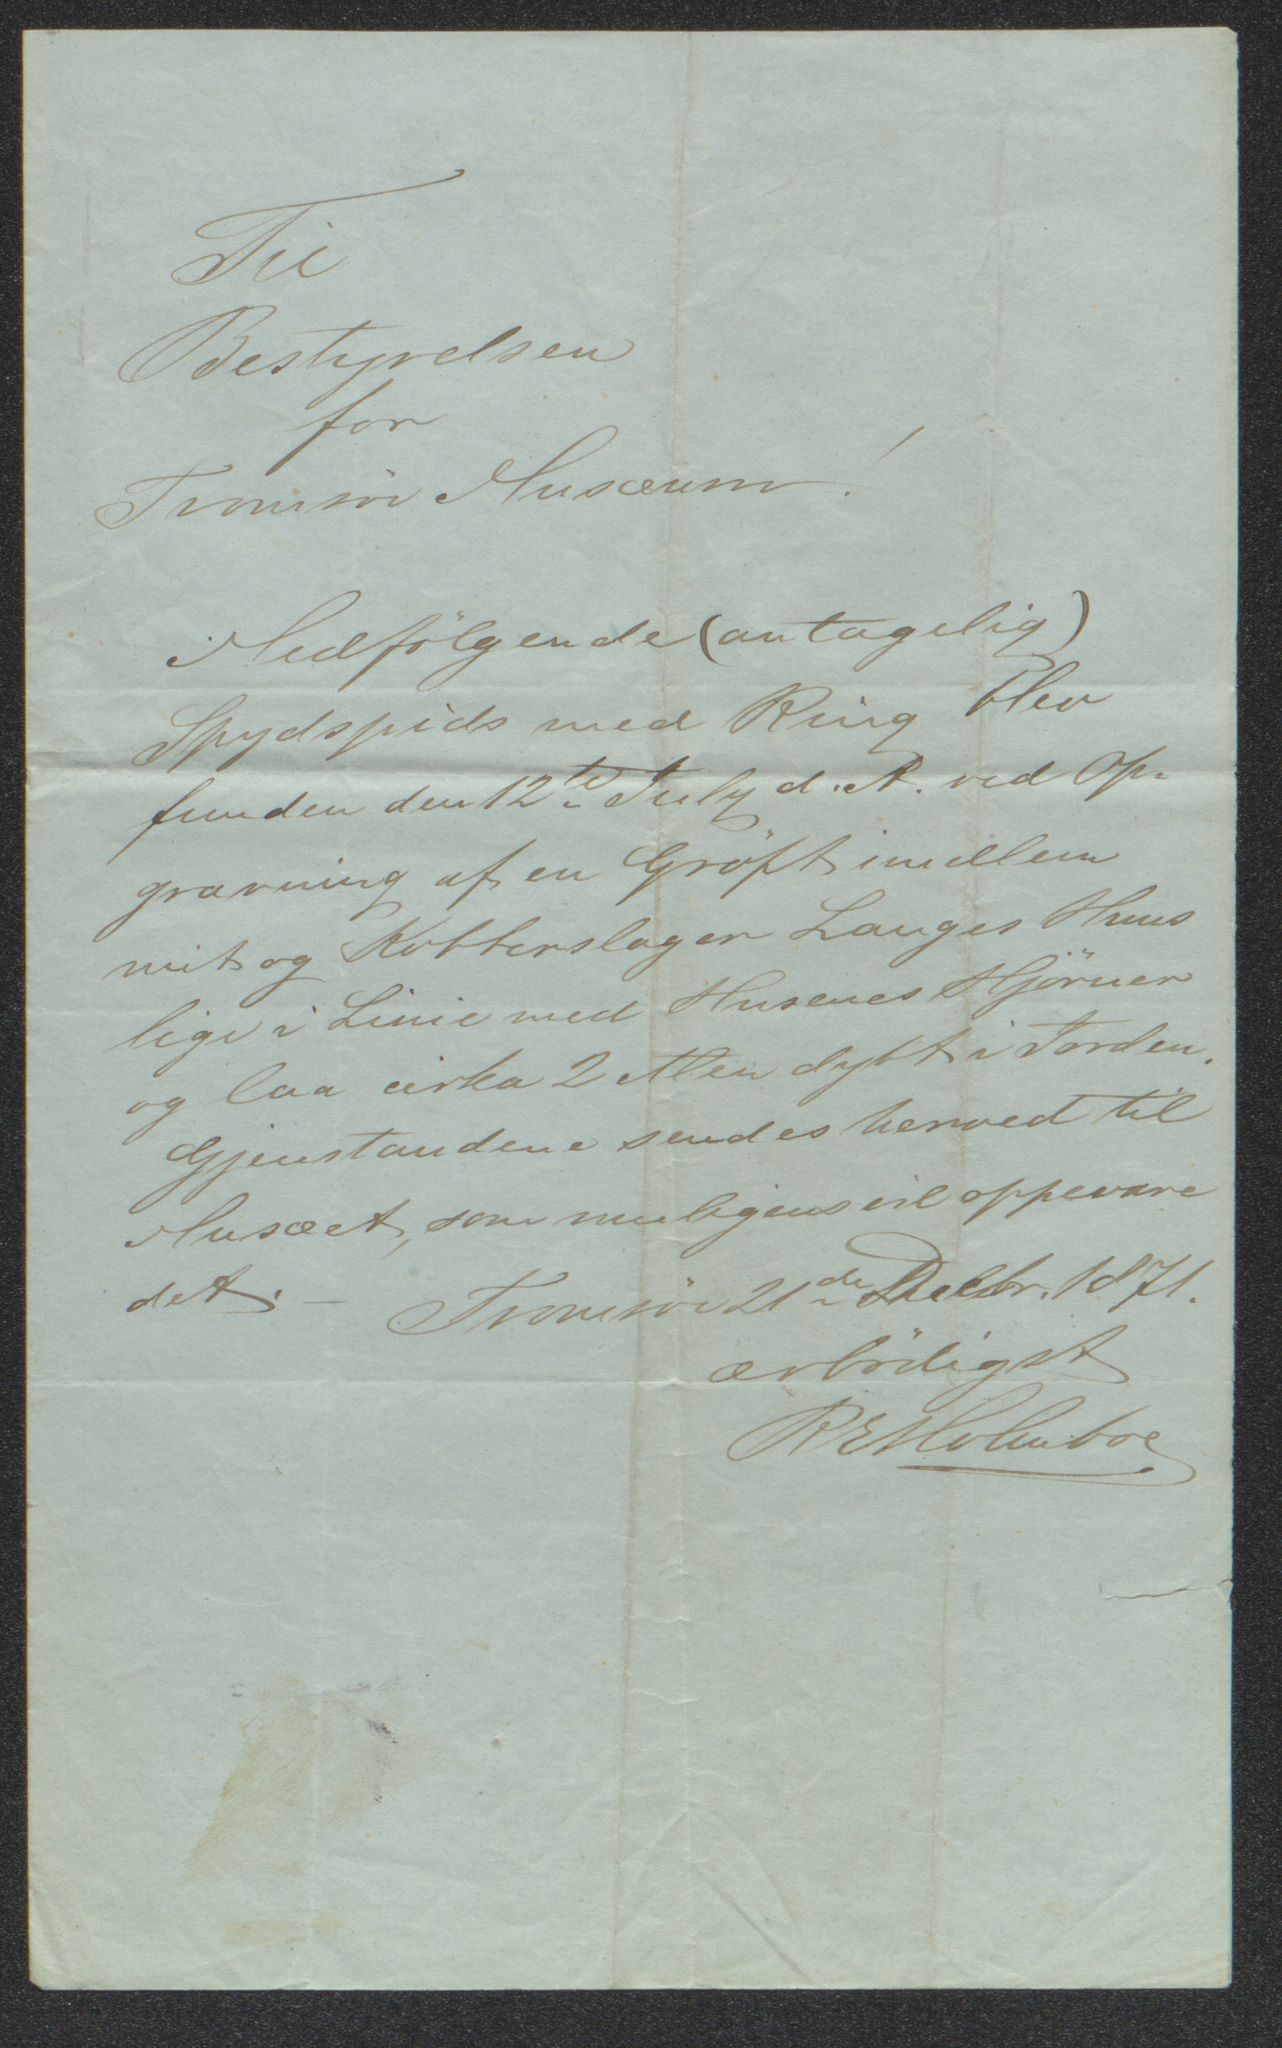 Til
Bestyrelsen
for
Tromsö Musæum!
Medfölgende (antagelig)
Spydspids med Ring blev
funden den 12te July d. A. ved Op-
gravning af en Gröft imellem
mit og Kobberslager Langes Huus
lige i Linie med Husenes Hjörner
og laa cirka 2 Alen dybt i Jorden.
Gjenstandene sendes herved til
Musæet, som muligens vil oppevare
det. – Tromsö 21de Decbr. 1871.
ærbödigst
R E Holmboe